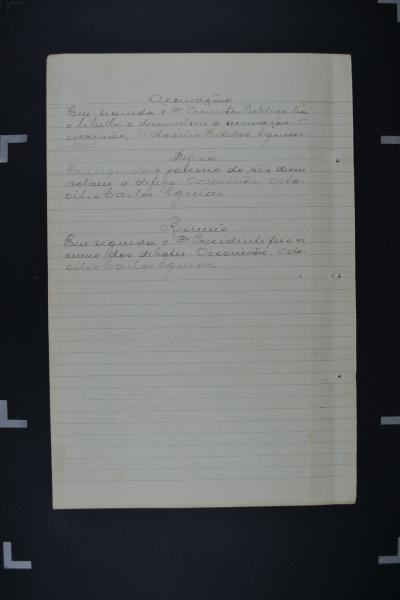 Accusação
Em seguida o Dr Promotor Publico leu
o libello e desenvolveu a accusação. O
escrivão, Octacilio Carlos Aguiar
Defesa
Em seguida o patrono do réo desen
volveu a defesa. O escrivão, Octa
cilio Carlos Aguiar
Resumo
Em seguida o Dr Presidente fez o re
sumo dos debates. O escrivão, Octa
cilio Carlos Aguiar